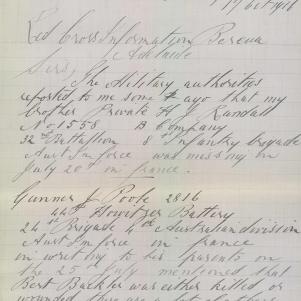 19 Oct 1916
Red Cross Information Bereua
Adelaide
Sirs,
The Military authorities
reported to me some ago that my
brother Private H J Randall
No 1558 B Company
32nd Battalion 8 Infantry brigade
Aust In force was missing on
July 20th in france.
Gunner J Poole 2816
44th Howitzer Battery
24th Brigade 4th Australian division
Aust In force in france
in writing to his parents on
the 25th July mentioned that
Bert Backler was either killed or
wounded there are